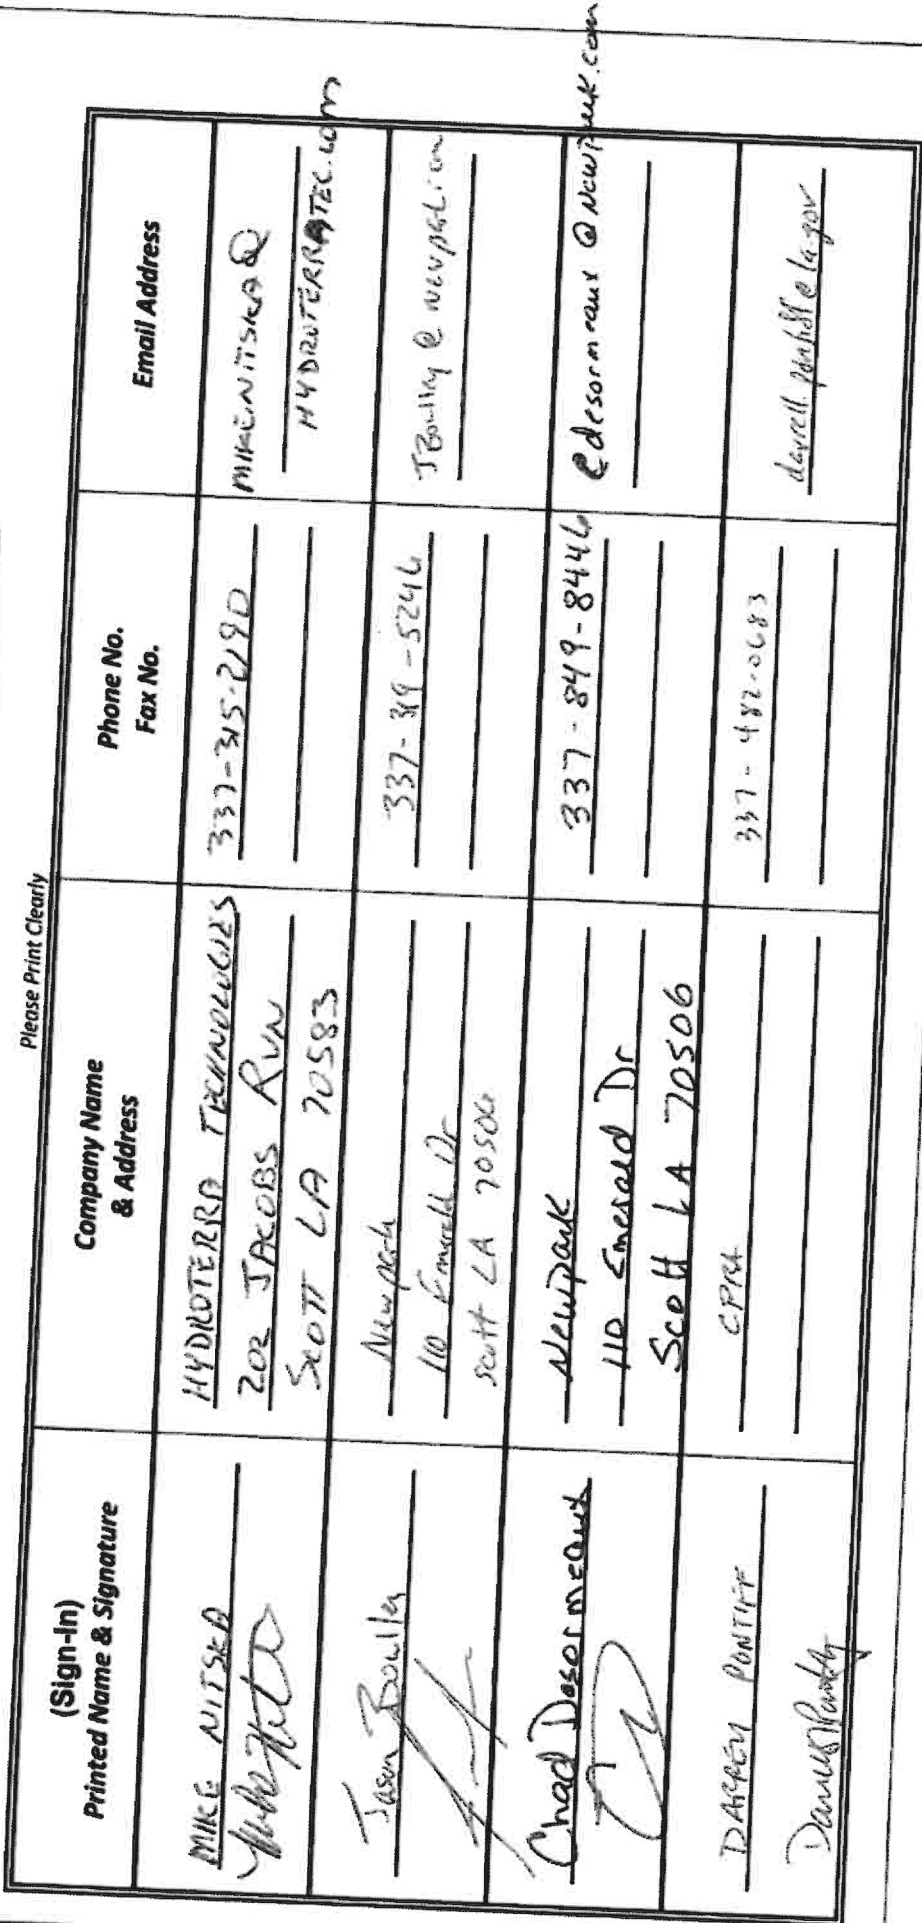 Please Print Clearly
(Sign-In)
Printed Name & Signature
Company Name
& Address
Phone No.
Fax No.
Email Address
MIKE NITSKA
HYDROTERRA TECHNOLOGIES
202 JACOBS RUN
SCOTT LA 70583
337-315-2190
HYDROTERRATEC.COM
Jason
Newpark
110 Emerald Dr
Scott LA 70506
337-319-5246
Chad Desormeaux
Newpark
110 Emerald Dr
Scott LA 70506
337-849-8446
cdesormeaux @ Newpark.com
PONTIFF
CPRA
337-482-0683